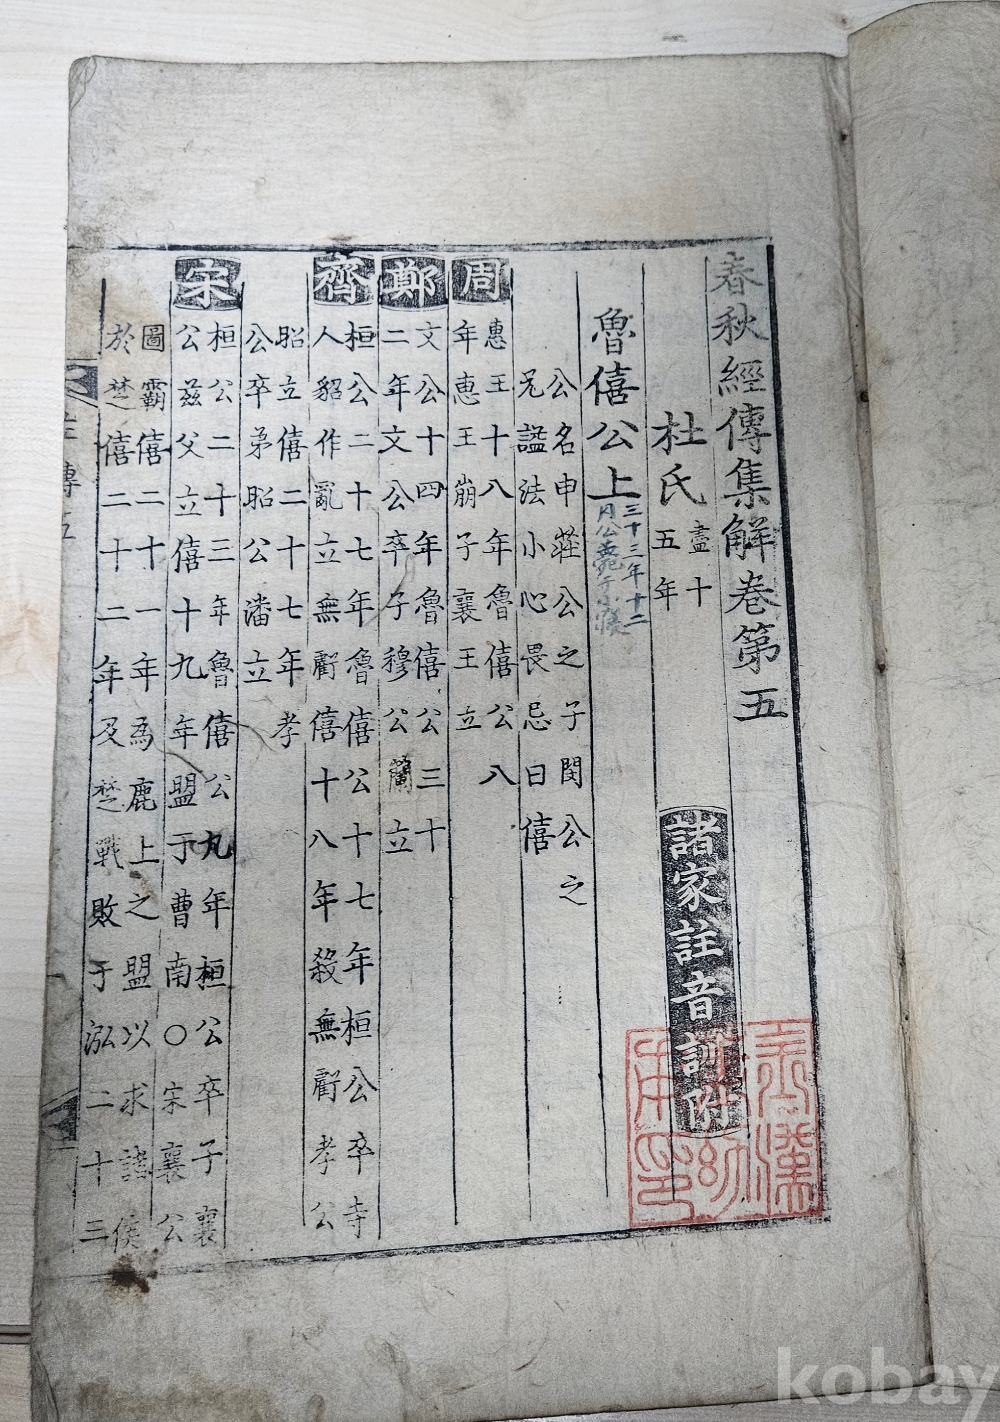 春秋經傳集解卷第五
杜氏
盡十
五年
諸家註音訓附
魯僖公上
三十三年十二
月公薨子
公名申莊公之子閔公之
兄謚法小心畏忌曰僖
周
惠王十八年魯僖公八
年惠王崩子襄王立
鄭
文公十四年魯僖公三十
二年文公卒子穆公蘭立
齊
桓公二十七年魯僖公十七年桓公卒寺
人貂作亂立無虧僖十八年殺無虧孝公
昭立僖二十七年孝
公卒弟昭公潘立
宋
桓公二十三年魯僖公九年桓公卒子襄
公兹父立僖十九年盟于曹南○宋襄公
圖霸僖二十一年為鹿上之盟以求諸侯
於楚僖二十二年及楚戰敗于泓二十三
左傳五
kobay